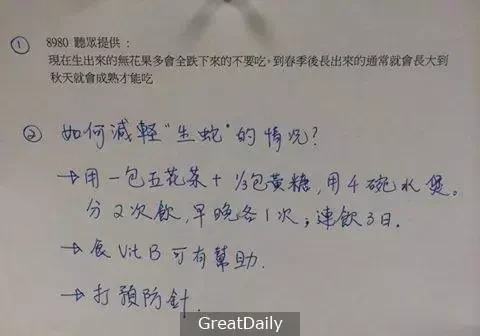 ① 8980 聽眾提供：
現在生出來的無花果多會全跌下來的不要吃，到春季後長出來的通常就會長大到
秋天就會成熟才能吃
② 如何減輕“生蛇”的情況？
→用一包五花茶+⅓包黃糖，用4碗水煲。
分2次飲，早晚各1次；連飲3日.
→食Vit B可有幫助.
→打預防針.
GreatDaily